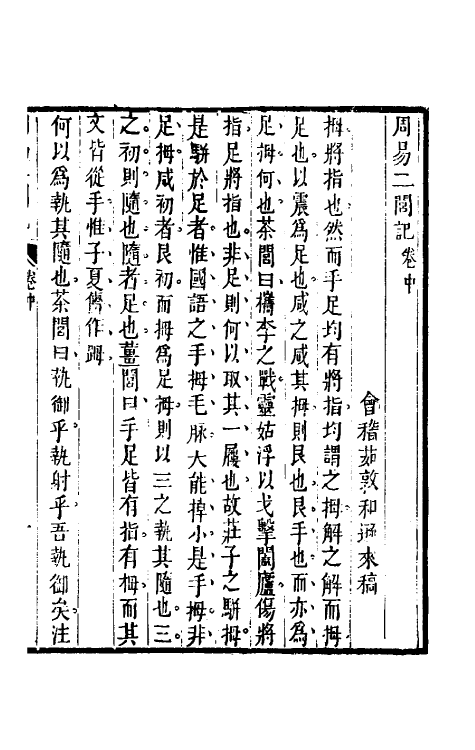 周易二閭記卷中
會稽茹敦和遜來稿
拇將指也然而手足均有將指均謂之拇解之解而拇
足也以震爲足也咸之咸其拇則艮也艮手也而亦爲
足拇何也茶閭曰檇李之戰靈姑浮以戈擊闔廬傷將
指足將指也非足則何以取其一屨也故莊子之駢拇
是駢於足者惟國語之手拇毛脉大能掉小是手拇非
足拇咸初者艮初而拇爲足拇則以三之執其隨也三
之初則隨也隨者足也薑閭曰手足皆有指有拇而其
文皆從手惟子夏傳作䟢
何以爲執其隨也茶閭曰執御乎執射乎吾執御矣注
卷中
一